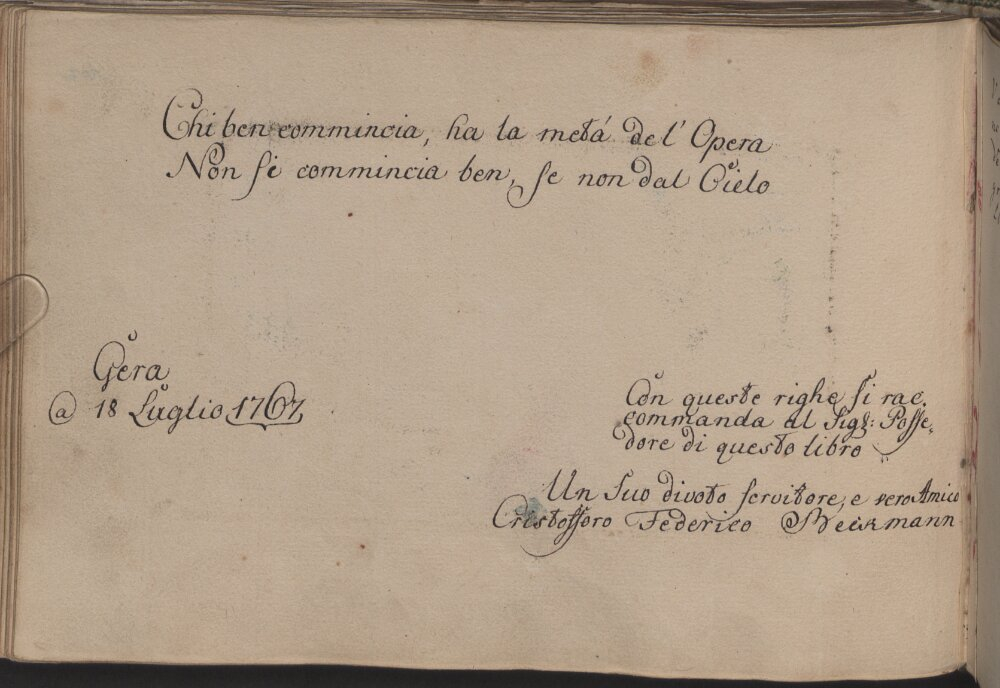 Chi ben commincia, ha la metá de l' Opera
Non si commincia ben, se non dal Cielo
Gera
a 18 Luglio 1767
Con queste righe si rac.
commanda al Sigr: Posse,
dore di questo libro
Un Suo divoto servitore, e vero Amico
Cristofforo Federico Beckmann